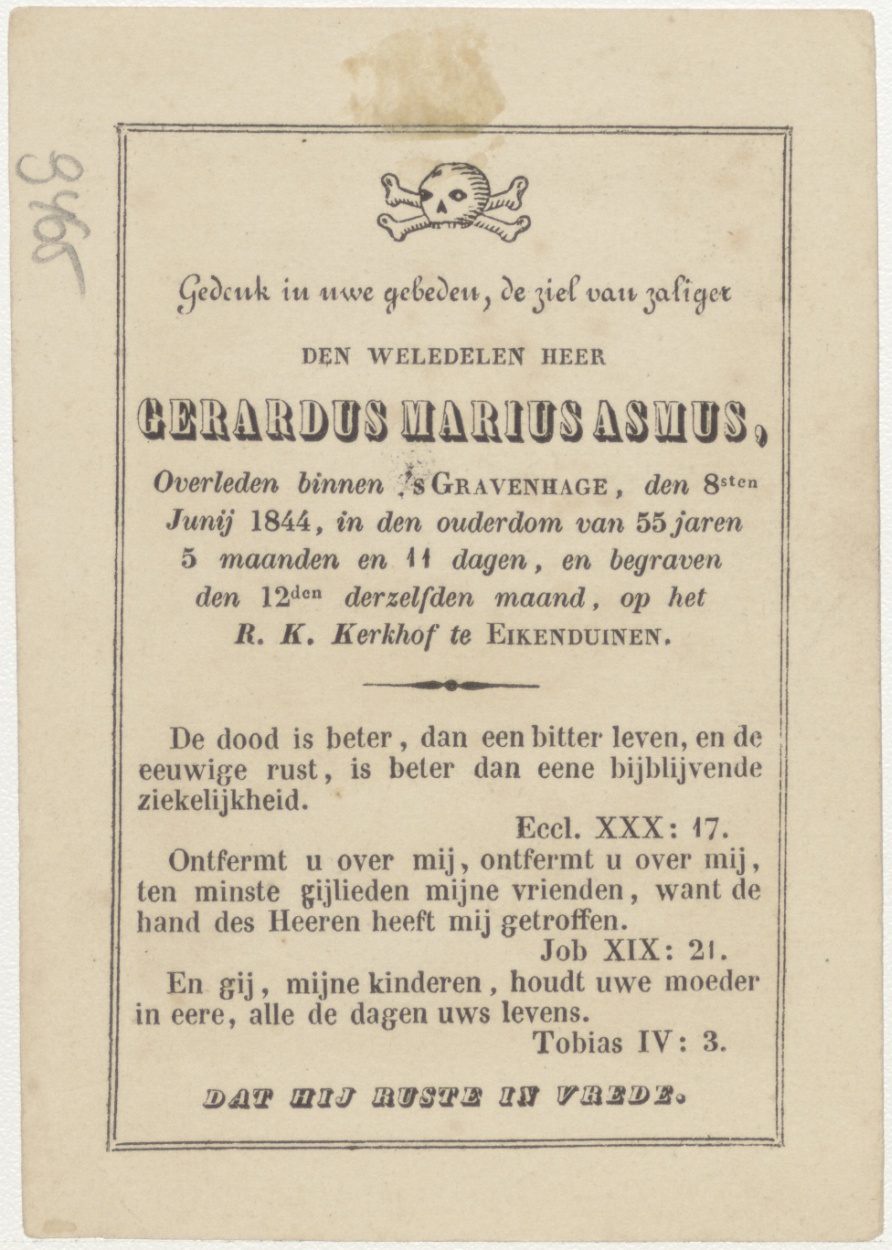 3465
Gedenk in uwe gebeden, de ziel van zaliger
DEN WELEDELEN HEER
GERARDUS MARIUS ASMUS,
Overleden binnen 's GRAVENHAGE, den 8sten
Junij 1844, in den ouderdom van 55 jaren
5 maanden en 11 dagen, en begraven
den 12den derzelfden maand, op het
R. K. Kerkhof te EIKENDUINEN.
De dood is beter, dan een bitter leven, en de
eeuwige rust, is beter dan eene bijblijvende
ziekelijkheid.
Eccl. XXX: 17.
Ontfermt u over mij, ontfermt u over mij,
ten minste gijlieden mijne vrienden, want de
hand des Heeren heeft mij getroffen.
Job XIX: 21.
En gij, mijne kinderen, houdt uwe moeder
in eere, alle de dagen uws levens.
Tobias IV: 3.
DAT HIJ RUSTE IN VREDE.